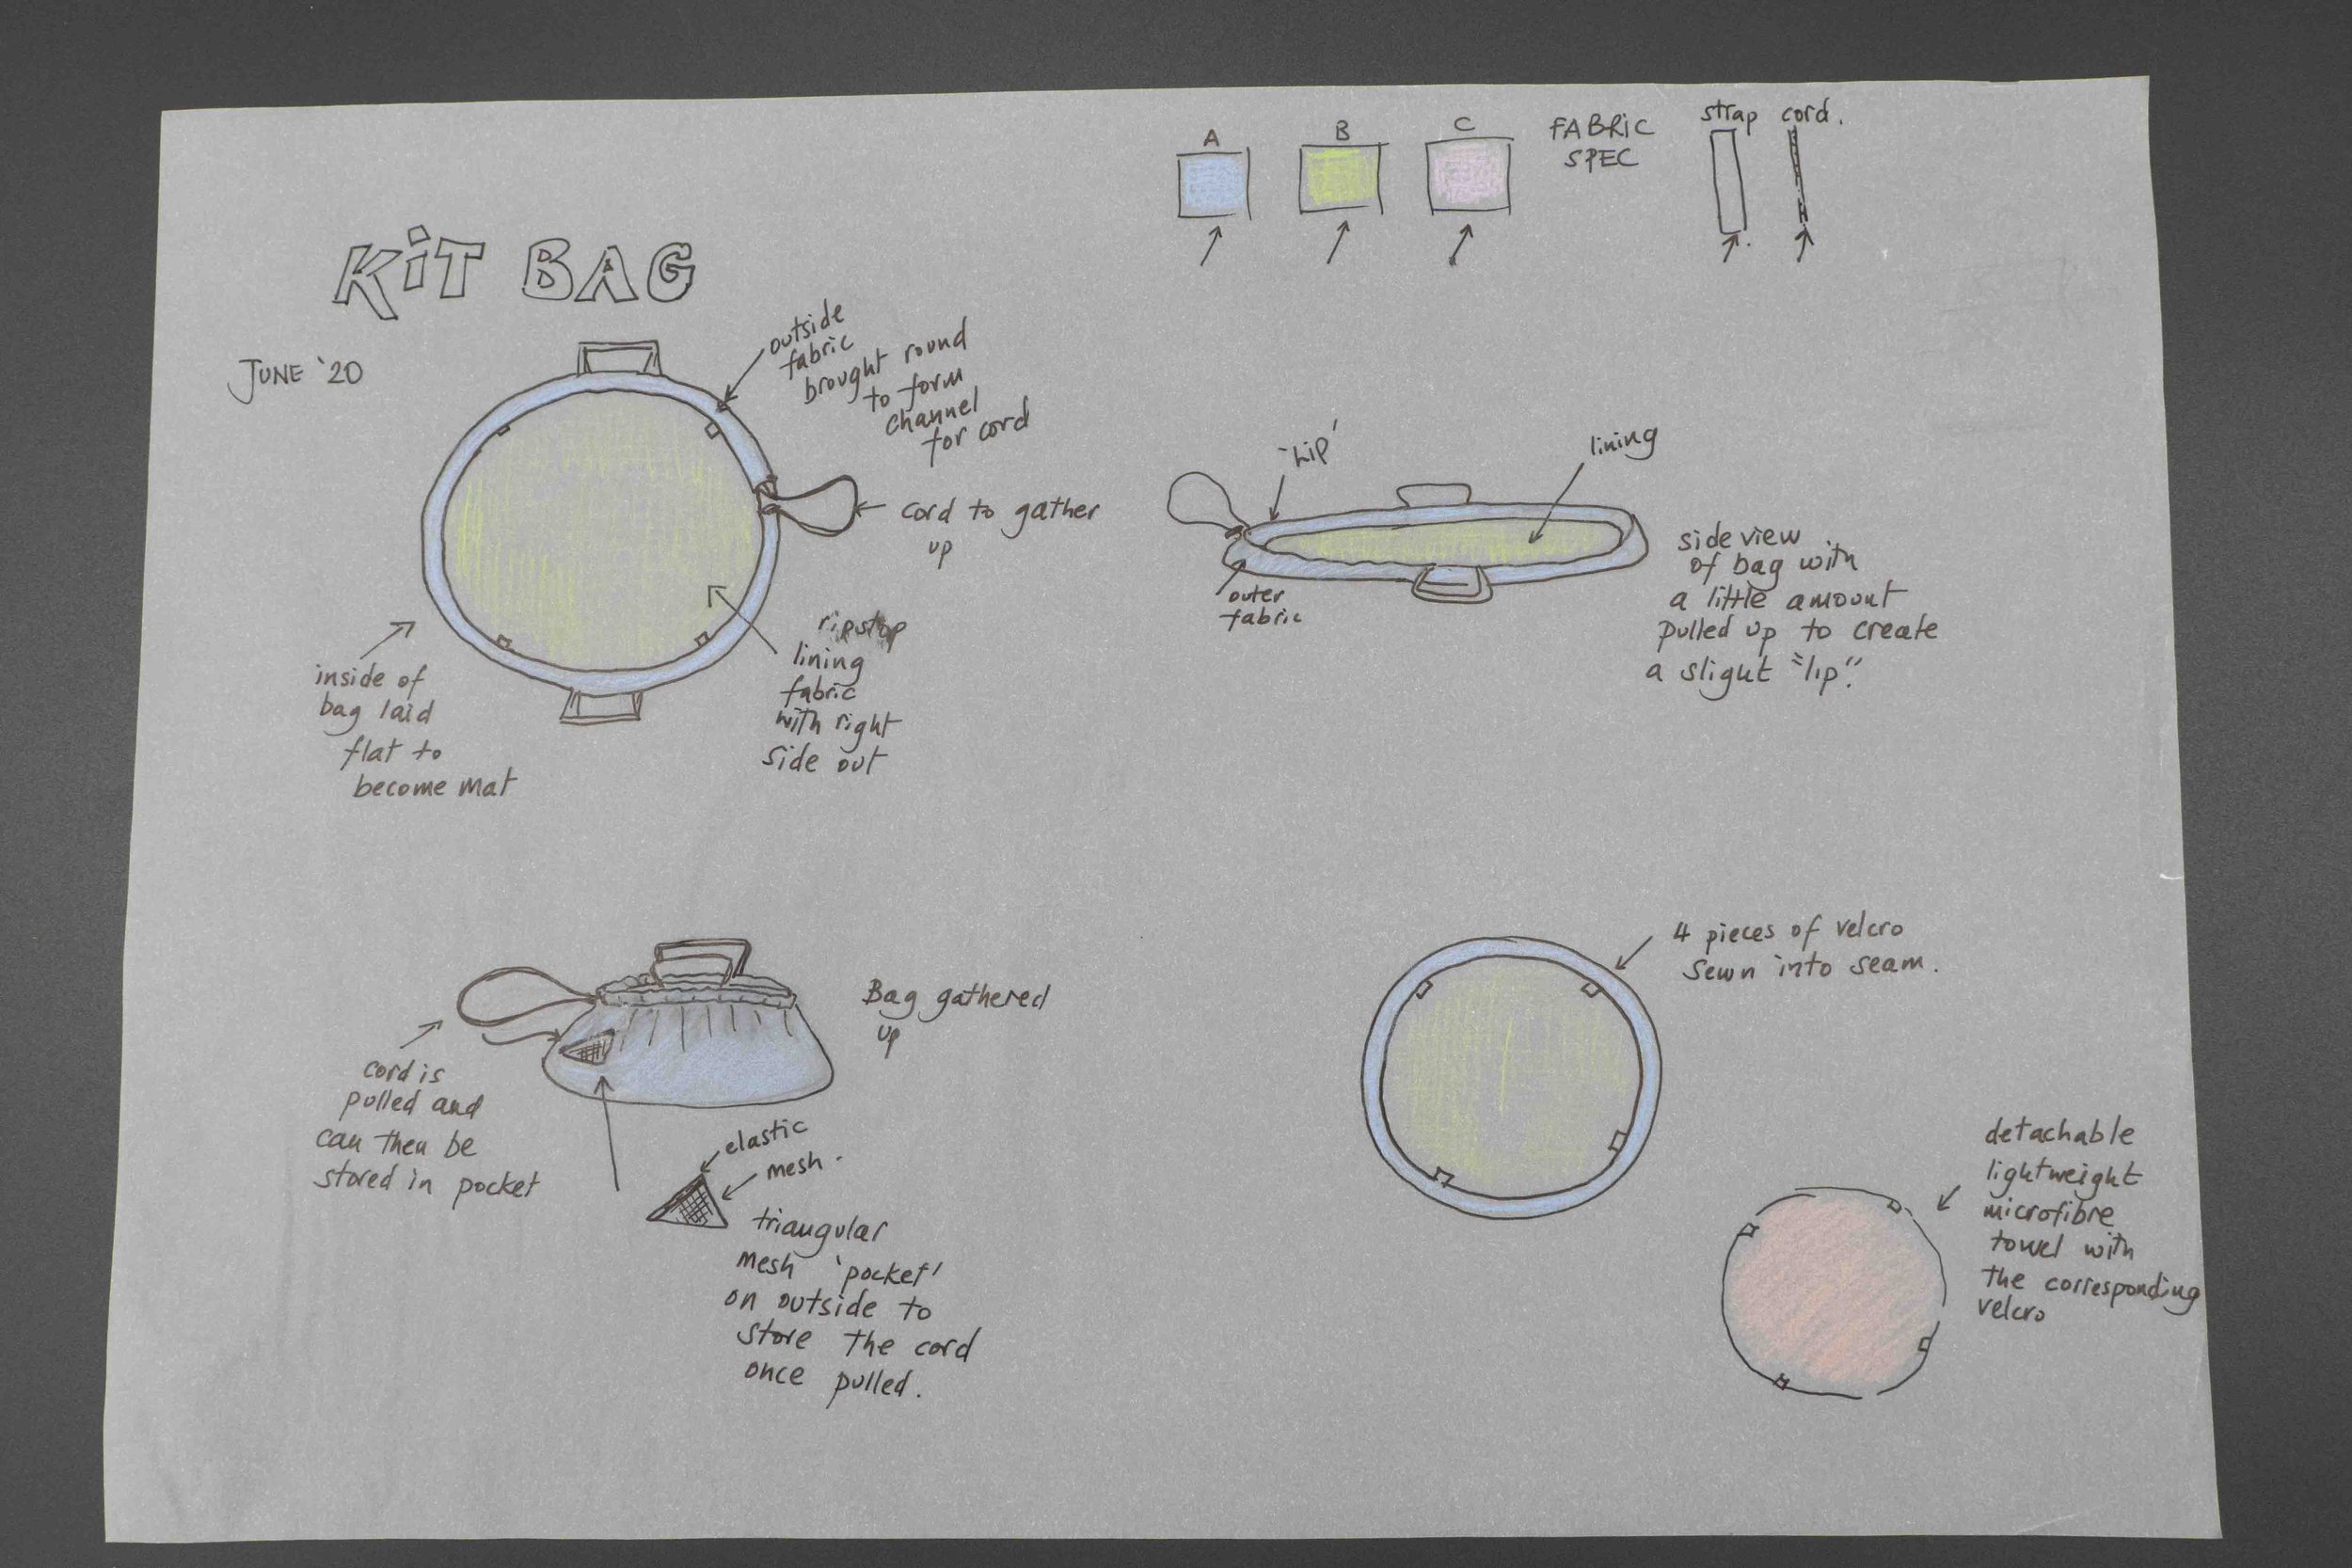 A
B
C
FABRIC
SPEC
strap
cord.
KiT BAG
JUNE '20
outside
fabric
brought round
to form
channel
for cord
cord to gather
up
ripstop
lining
fabric
with right
side out
inside of
bag laid
flat to
become mat
'Lip'
lining
outer
fabric
side view
of bag with
a little amount
pulled up to create
a slight "lip".
Bag gathered
up
cord is
pulled and
can then be
stored in pocket
elastic
mesh.
triangular
mesh 'pocket'
on outside to
store the cord
once pulled.
4 pieces of velcro
sewn into seam.
detachable
lightweight
microfibre
towel with
the corresponding
velcro